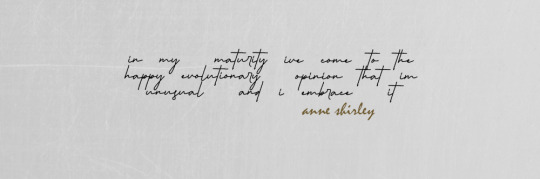 in my maturity ive come to the
happy evolutionary opinion that im
unusual and i embrace it
anne shirley